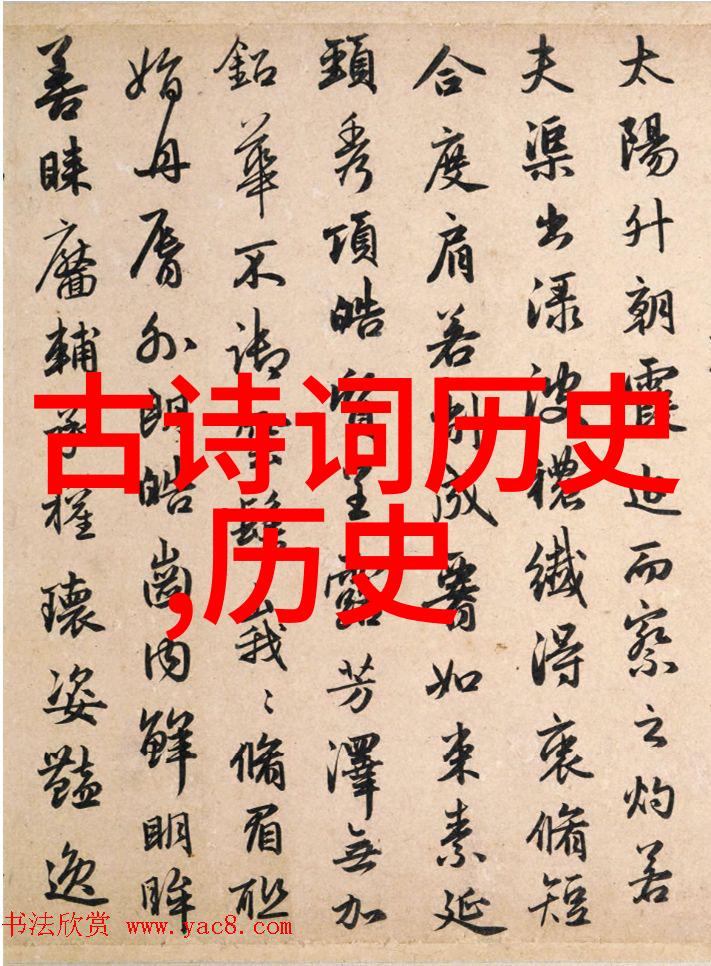 太陽升朝霞迫而察之灼若
夫渠出渌波穠纖得衷脩短
合度肩若削成如束素延
頸秀項皓質呈露芳澤無加
鉛華不御雲髻峩〻脩眉聯
娟丹脣外朗皓齒内鮮明眸
善睞靨輔承權瓌姿豔逸
古诗词历史
,历史
书法欣赏 www.yac8.com